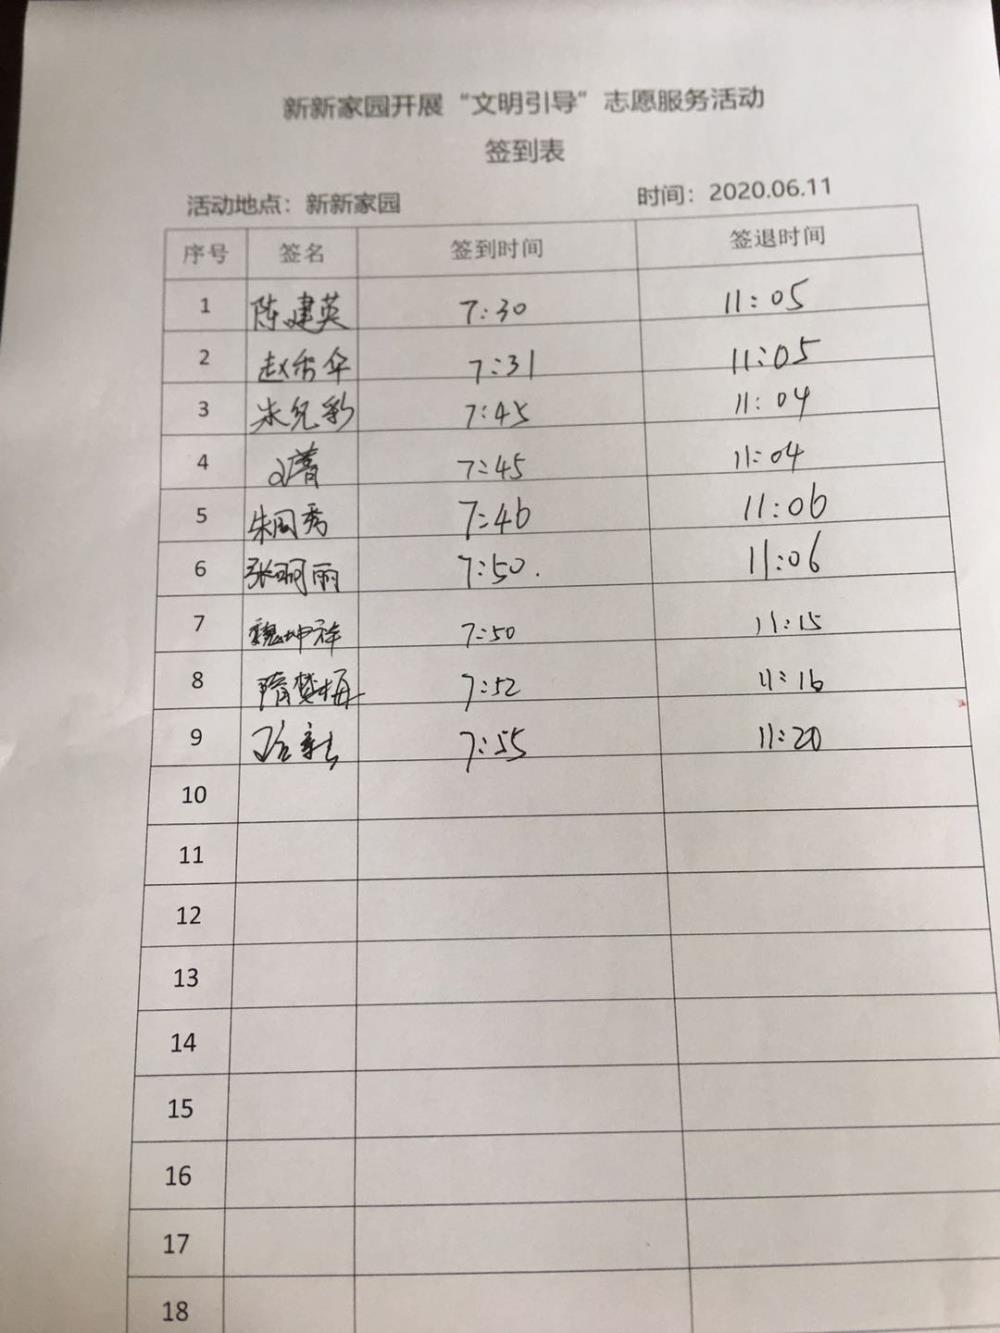 新新家园开展“文明引导”志愿服务活动
签到表
活动地点：新新家园 时间：2020.06.11
序号 签名 签到时间 签退时间
1 陈建英 7:30 11:05
2 赵秀华 7:31 11:05
3 朱允彩 7:45 11:04
4 7:45 11:04
5 朱同秀 7:46 11:06
6 张丽 7:50. 11:06
7 魏坤祥 7:50 11:15
8 隋梦梅 7:52 11:16
9 7:55 11:20
10
11
12
13
14
15
16
17
18